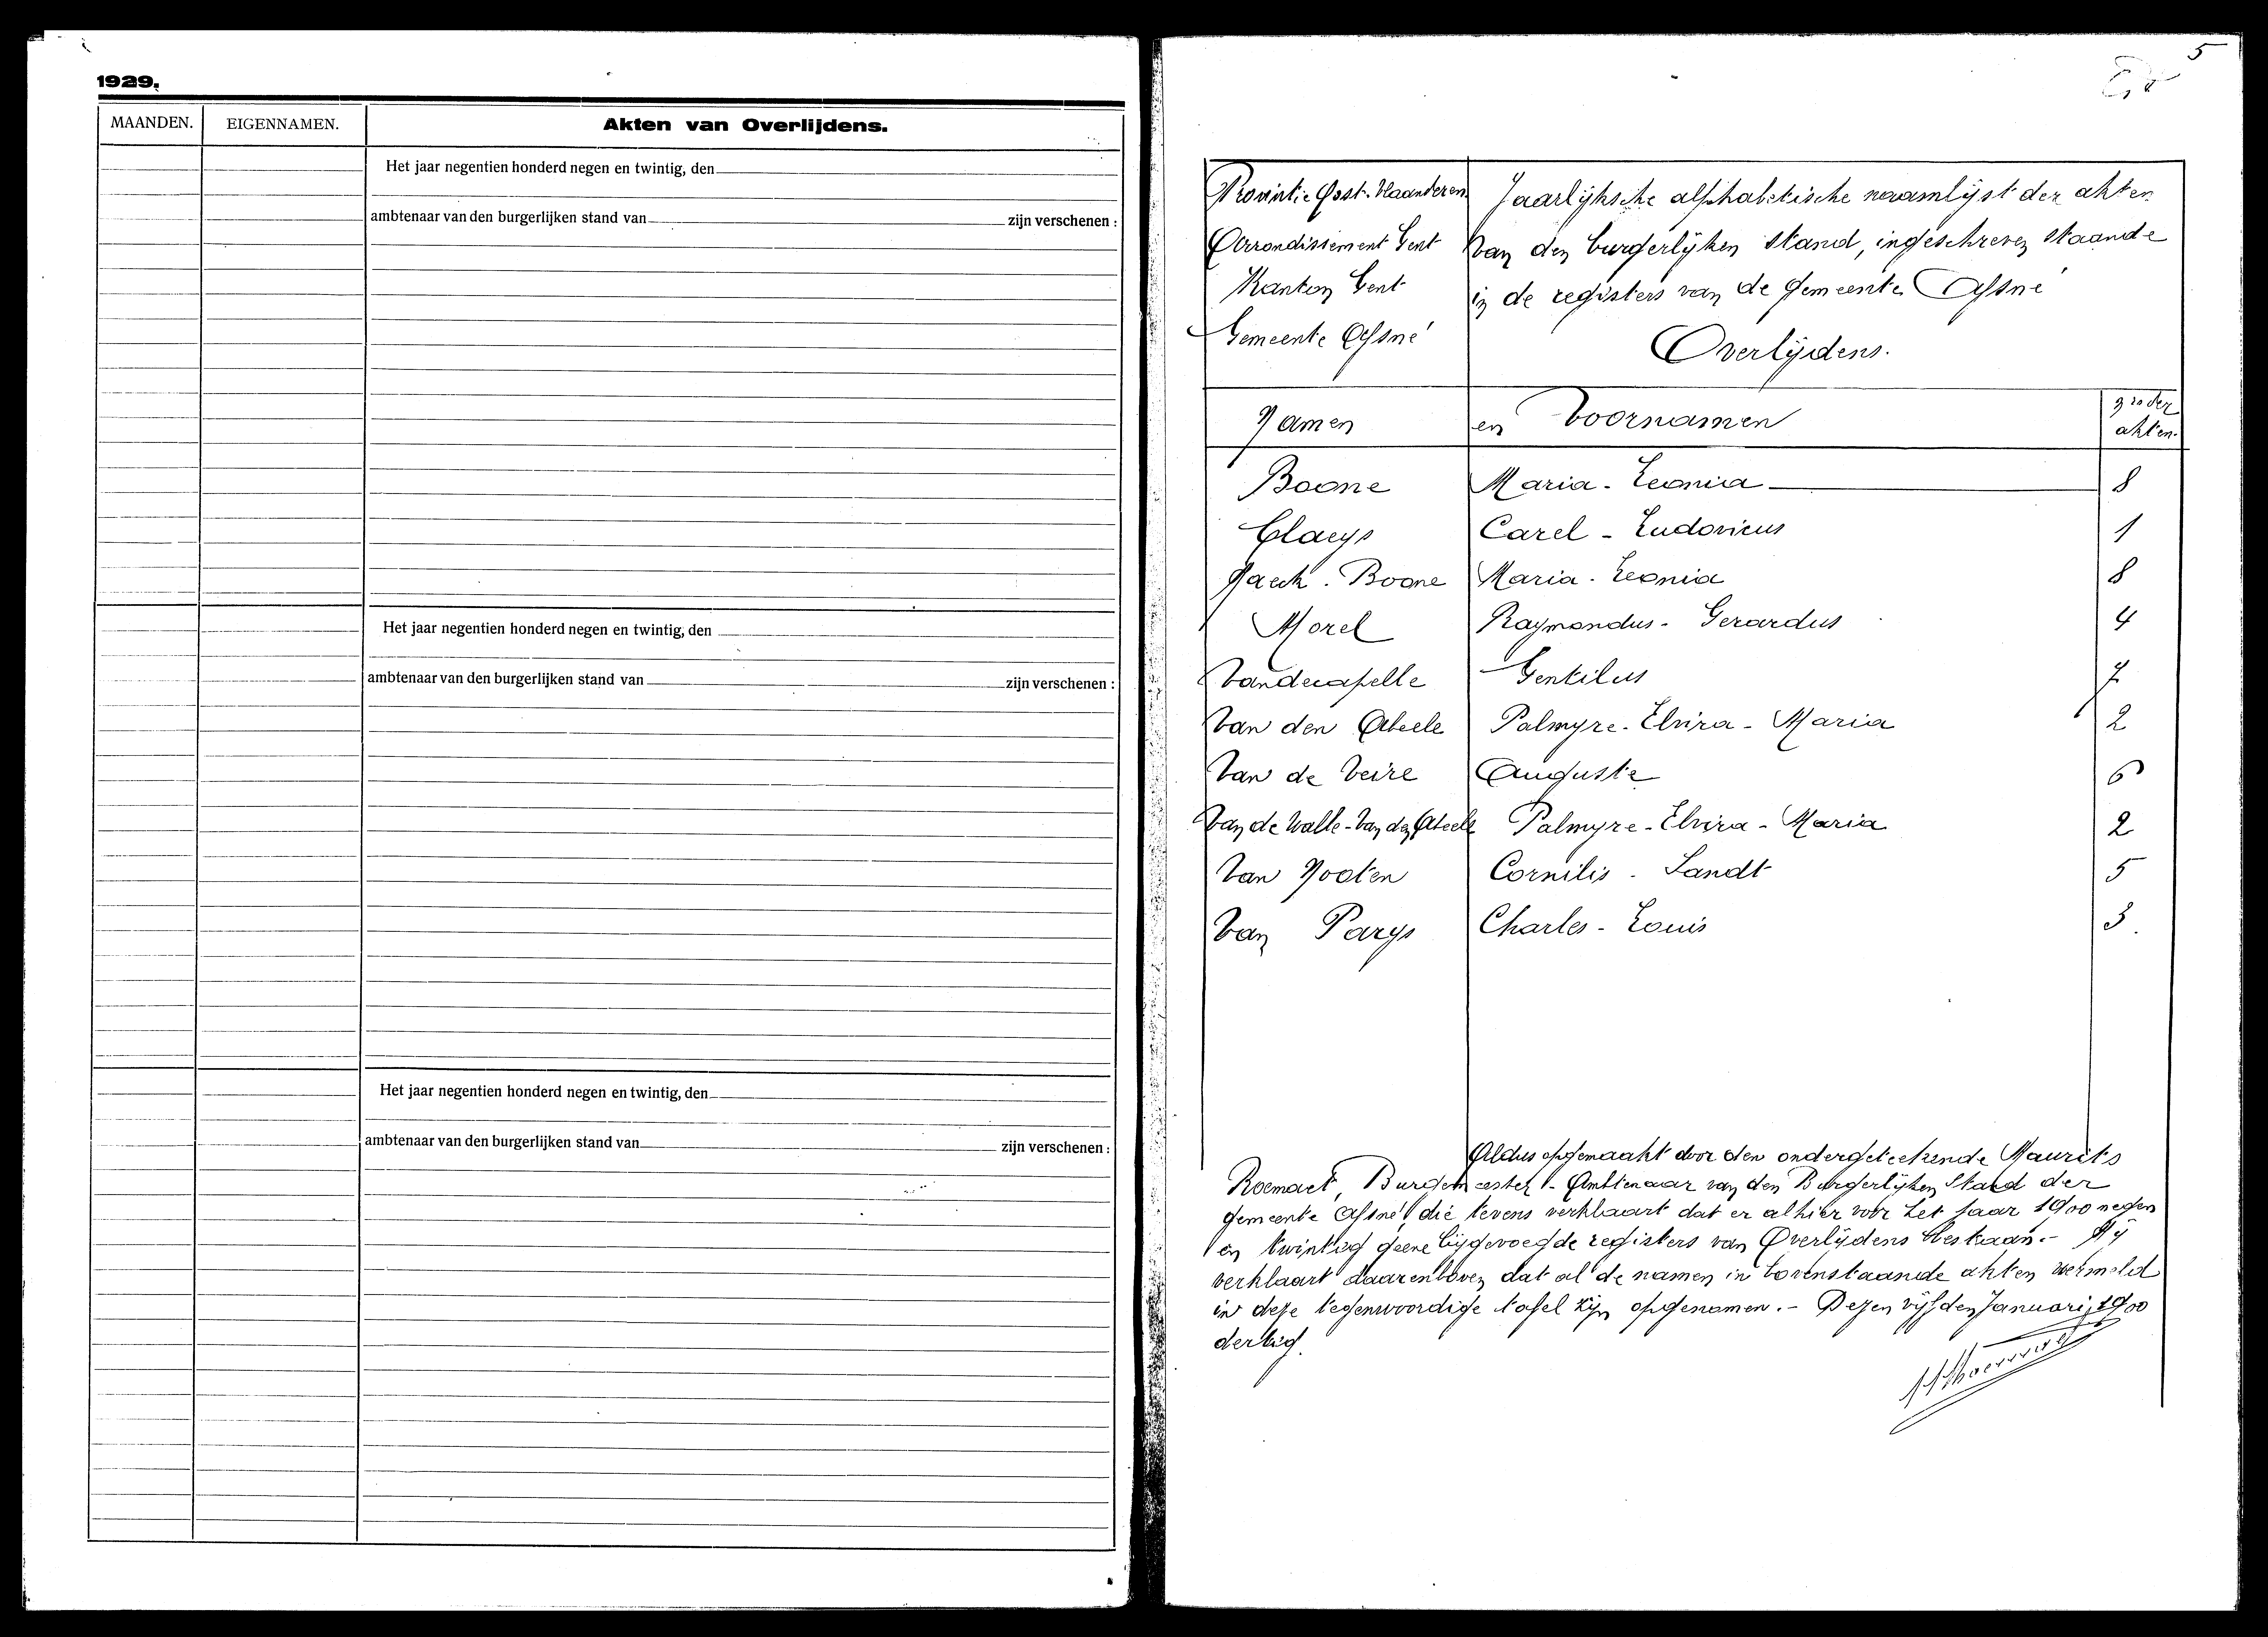 1929.
MAANDEN. EIGENNAMEN. Akten van Overlijdens.
Het jaar negentien honderd negen en twintig, den
ambtenaar van den burgerlijken stand van zijn verschenen :
Het jaar negentien honderd negen en twintig, den
ambtenaar van den burgerlijken stand van zijn verschenen :
Het jaar negentien honderd negen en twintig, den
ambtenaar van den burgerlijken stand van zijn verschenen :
5
Provintie Oost-Vlaanderen Jaarlijksche alphabetische naamlijst der akten
Arrondissement Gent van den burgerlijken stand, ingeschreven staande
Kanton Gent in de registers van de gemeente Afsné
Gemeente Afsné
Overlijdens.
Namen en Voornamen nrs der akten.
Boone Maria - Leonia 8
Claeys Carel - Ludovicus 1
Haeck - Boone Maria - Leonia 8
Morel Raymondus - Gerardus 4
Vandecapelle Gentilus 7
Van den Abeele Palmyre - Elvira - Maria 2
Van de Veire Auguste 6
Van de Walle - Van den Abeele Palmyre - Elvira - Maria 2
Van Nooten Cornilis - Sandt 5
Van Parys Charles - Louis 3.
Aldus opgemaakt door den ondergeteekende Maurits
Roemaet, Burgemeester - Ambtenaar van den Burgerlijken Stand der
gemeente Afsné, die tevens verklaart dat er alhier voor het jaar 1900 negen
en twintig geene bijgevoegde registers van Overlijdens bestaan. - Hij
verklaart daarenboven dat al de namen in bovenstaande akten vermeld
in deze tegenwoordige tafel zijn opgenomen. - Dezen vijfden Januari 1900
dertig.